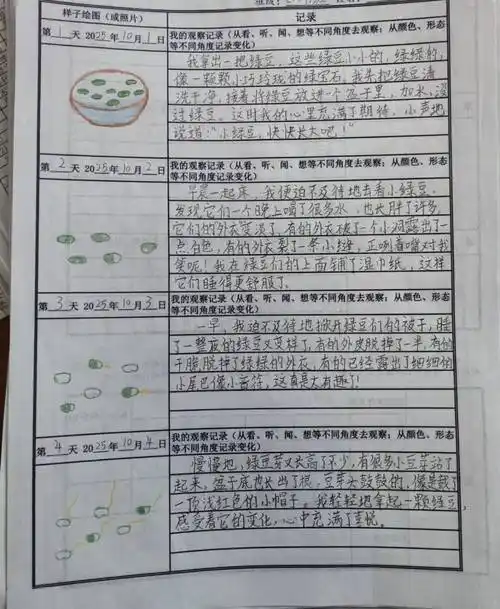 样子绘图（或照片）
记录
第1天 2025年10月1日
我的观察记录（从看、听、闻、想等不同角度去观察；从颜色、形态
等不同角度记录变化）
我拿出一把绿豆，这些绿豆小小的，绿绿的，
像一颗颗小巧玲珑的绿宝石。我先把绿豆清
洗干净，接着将绿豆放进一个盆子里，加水，没
过绿豆。这时我的心里充满了期待，小声地
说道："小绿豆，快快长大吧！"
第2天 2025年10月2日
我的观察记录（从看、听、闻、想等不同角度去观察；从颜色、形态
等不同角度记录变化）
早晨一起床，我便迫不及待地去看小绿豆。
发现它们一个晚上喝了很多水，也长胖了许多，
它们的外衣变淡了，有的外衣破了一个小洞露出了一
点白色，有的外衣裂了一条小缝，正咧着嘴对我
笑呢！我在绿豆们的上面铺了湿巾纸，这样
它们睡得更舒服了。
第3天 2025年10月3日
我的观察记录（从看、听、闻、想等不同角度去观察；从颜色、形态
等不同角度记录变化）
一早，我迫不及待地掀开绿豆们的被子，睡
了一整夜的绿豆又变样了，有的外皮脱掉了一半，有的
干脆脱掉了绿绿的外衣，有的已经露出了细细的
小尾巴像小音符，这真是太有趣了！
第4天 2025年10月4日
我的观察记录（从看、听、闻、想等不同角度去观察；从颜色、形态
等不同角度记录变化）
慢慢地，绿豆芽又长高了不少，有很多小豆芽站了
起来，盆子底也长出了根，豆芽头鼓鼓的，像是戴了
一顶浅红色的小帽子。我轻轻地拿起一颗绿豆
感受着它的变化，心中充满了喜悦。